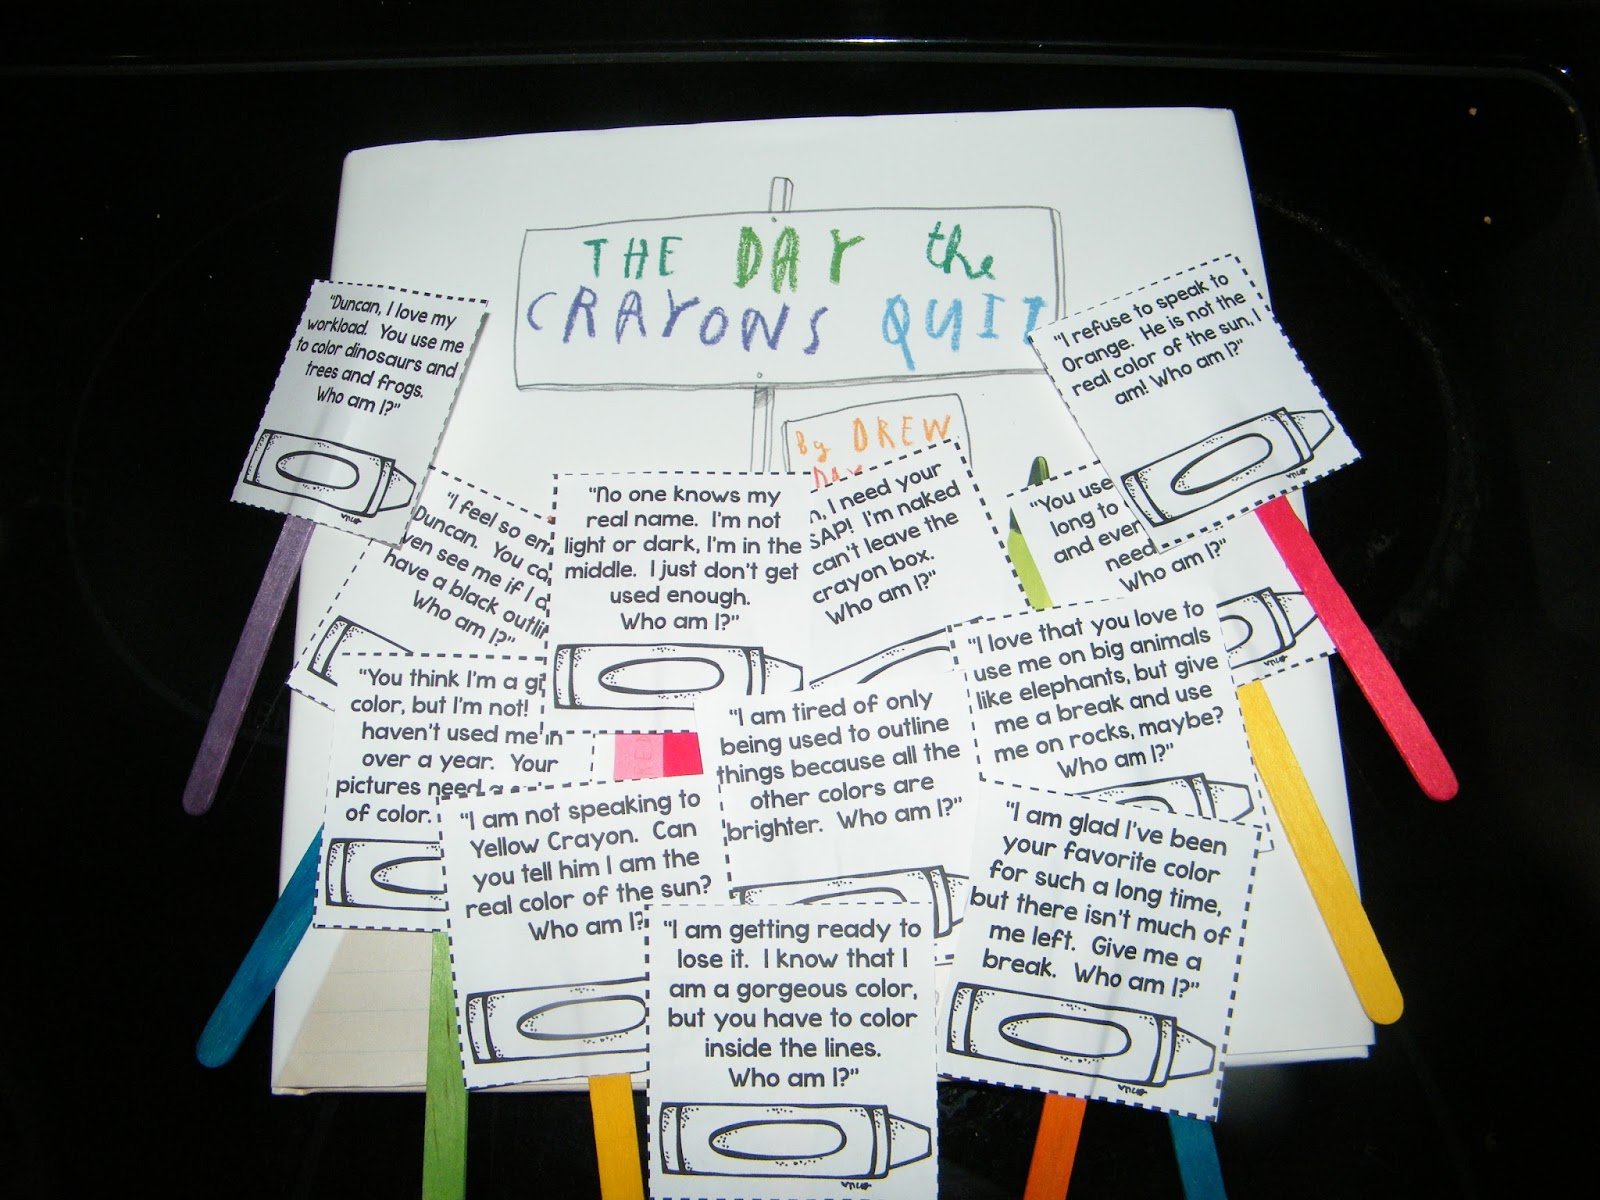 THE DAY the
CRAYONS QUIT
By DREW
"Duncan, I love my
workload. You use me
to color dinosaurs and
trees and frogs.
Who am I?"
"I refuse to speak to
Orange. He is not the
real color of the sun, I
am! Who am I?"
"I feel so
Duncan. You
see me if I
have a black
Who am I?"
"No one knows my
real name. I'm not
light or dark, I'm in the
middle. I just don't get
used enough.
Who am I?"
I need your
ASAP! I'm naked
can't leave the
crayon box.
Who am I?"
"You use
long to
and
need
Who am I?"
"You think I'm a
color, but I'm not!
haven't used me in
over a year. Your
pictures need a
of color.
"I am tired of only
being used to outline
things because all the
other colors are
brighter. Who am I?"
"I love that you love to
use me on big animals
like elephants, but give
me a break and use
me on rocks, maybe?
Who am I?"
"I am not speaking to
Yellow Crayon. Can
you tell him I am the
real color of the sun?
Who am I?
"I am glad I've been
your favorite color
for such a long time,
but there isn't much of
me left. Give me a
break. Who am I?"
"I am getting ready to
lose it. I know that I
am a gorgeous color,
but you have to color
inside the lines.
Who am I?"